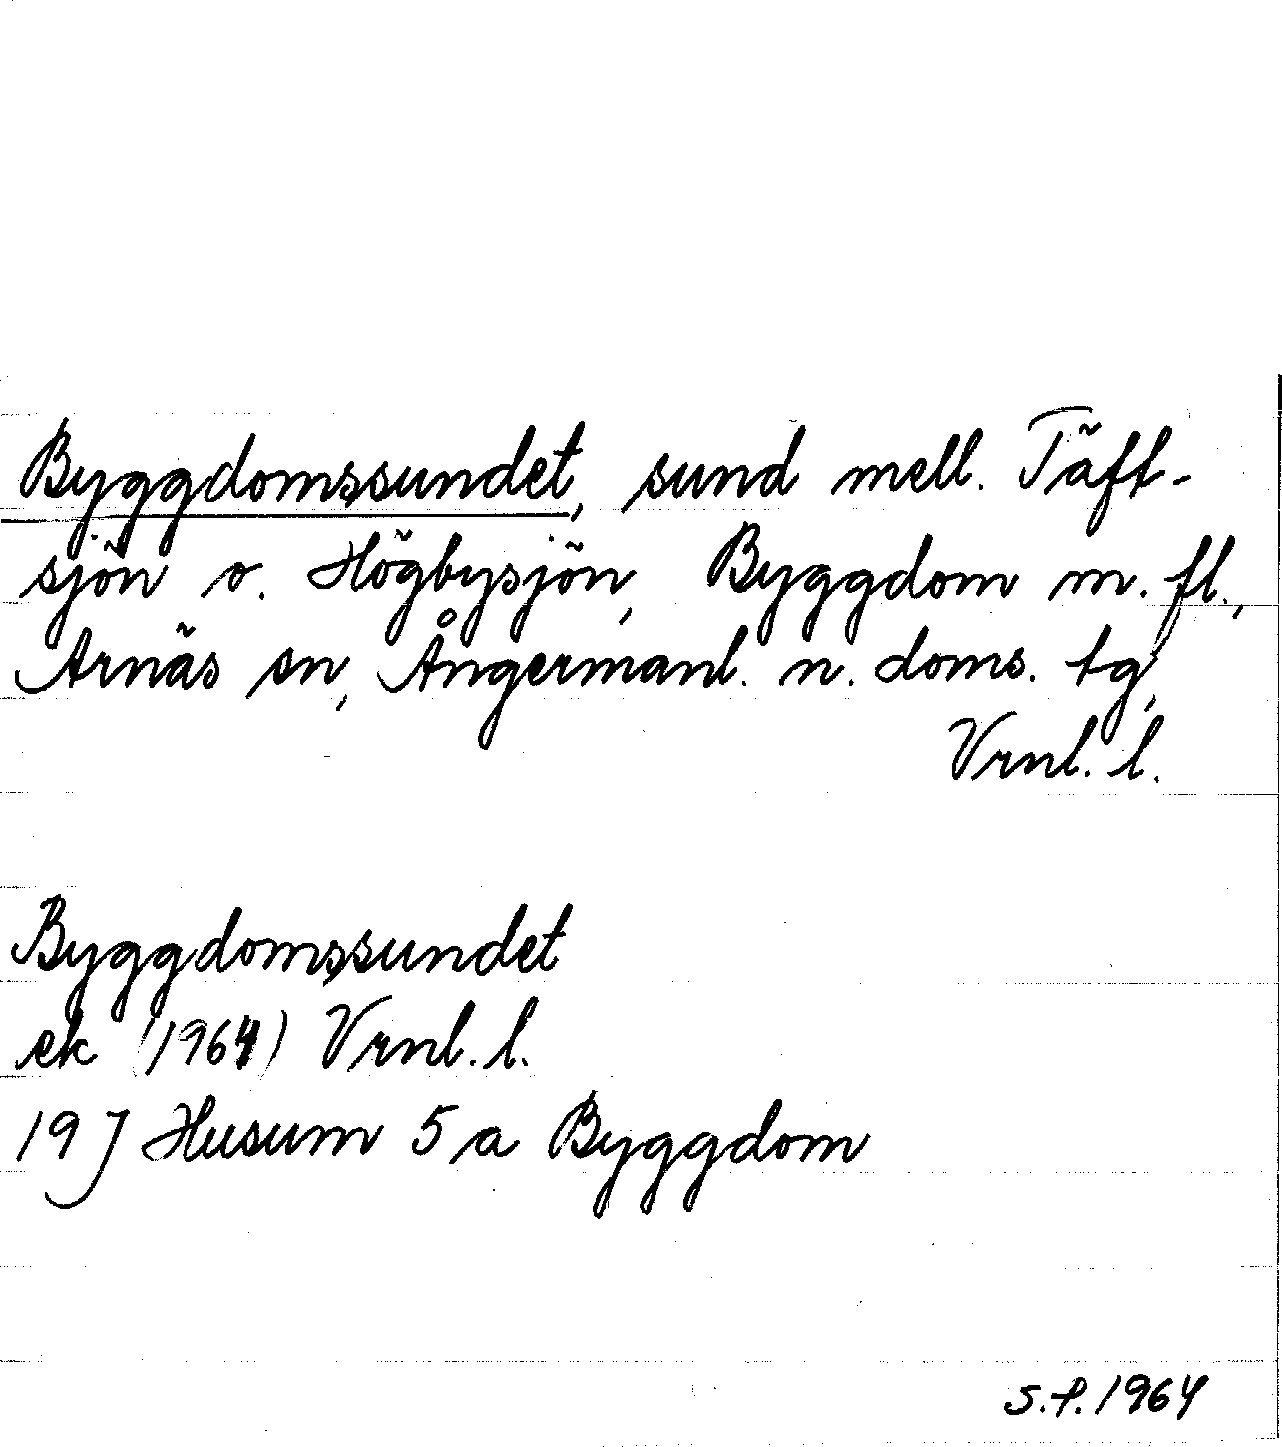 Byggdomssundet, sund mell. Täft-
sjön o. Högbysjön, Byggdom m. fl.,
Arnäs sn, Ångermanl. n. doms. tg,
Vrnl. l.
Byggdomssundet
ek (1964) Vrnl. l.
19 J Husum 5 a Byggdom
S.P. 1964